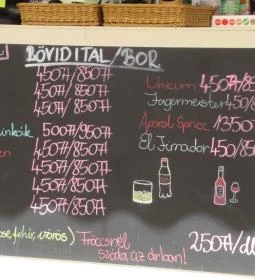 RÖVIDITAL/BOR
450Ft/850Ft
450Ft/850Ft
450Ft/850Ft
500Ft/950Ft
450Ft/850Ft
450Ft/850Ft
450Ft/850Ft
450Ft/850Ft
450Ft/850Ft
Unicum 450Ft/850
Jagermeister 450/8
Aperol Spricc 1350
El Jimador 450/85
fehér, vörös) Fröccsnél
szóda az árban!
250Ft/dl